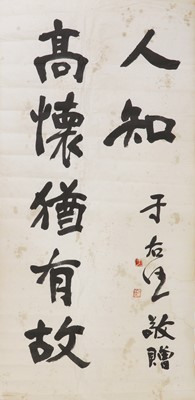 人知
高懷猶有故
于右任敬贈